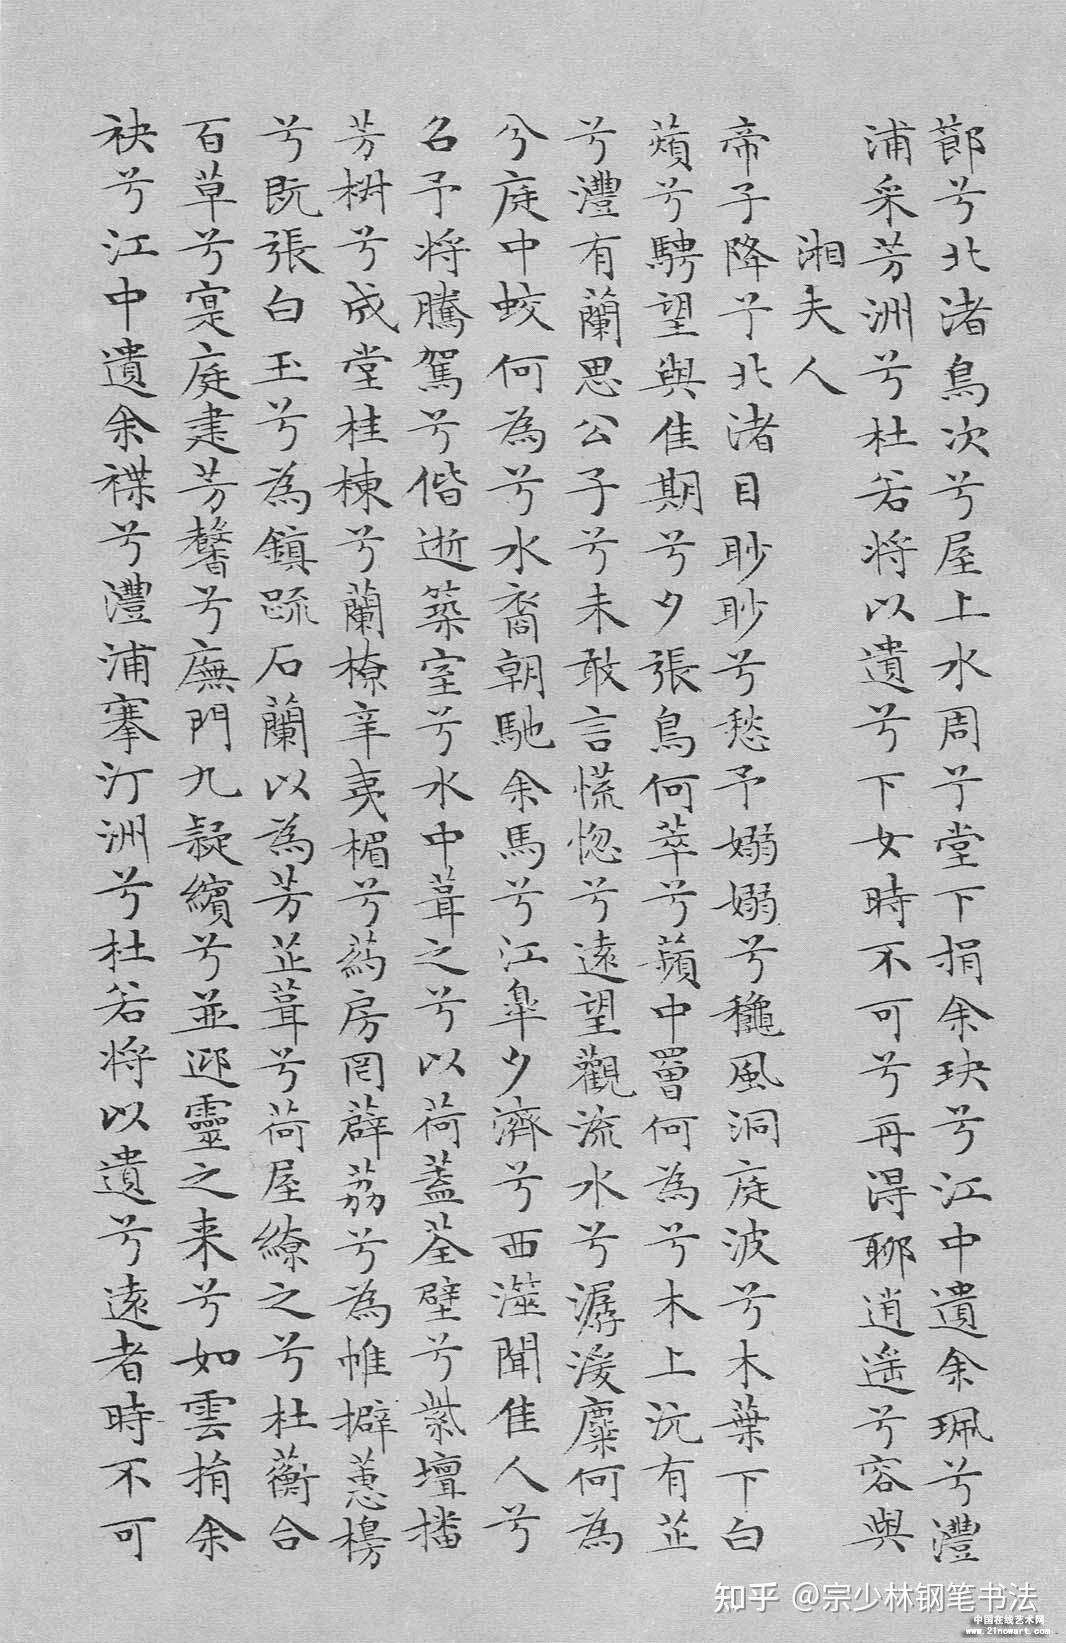 莭兮北渚鳥次兮屋上水周兮堂下捐余玦兮江中遺余珮兮澧
浦采芳洲兮杜若將以遺兮下女時不可兮再得聊逍遥兮容與
湘夫人
帝子降兮北渚目眇眇兮愁予嫋嫋兮穐風洞庭波兮木葉下白
薠兮騁望與佳期兮夕張鳥何萃兮蘋中罾何為兮木上沅有芷
兮澧有蘭思公子兮未敢言慌惚兮遠望觀流水兮潺湲麋何為
兮庭中蛟何為兮水裔朝馳余馬兮江皋夕濟兮西澨聞佳人兮
召予將騰駕兮偕逝築室兮水中葺之兮以荷蓋荃壁兮紫壇播
芳椒兮成堂桂棟兮蘭橑辛夷楣兮葯房罔薜荔兮為帷擗蕙櫋
兮既張白玉兮為鎮疏石蘭以為芳芷葺兮荷屋繚之兮杜蘅合
百草兮寔庭建芳馨兮廡門九疑繽兮並迎靈之来兮如雲捐余
袂兮江中遺余褋兮澧浦搴汀洲兮杜若將以遺兮遠者時不可
知乎 @宗少林钢笔书法
中国在线艺术网
www.21nowart.com